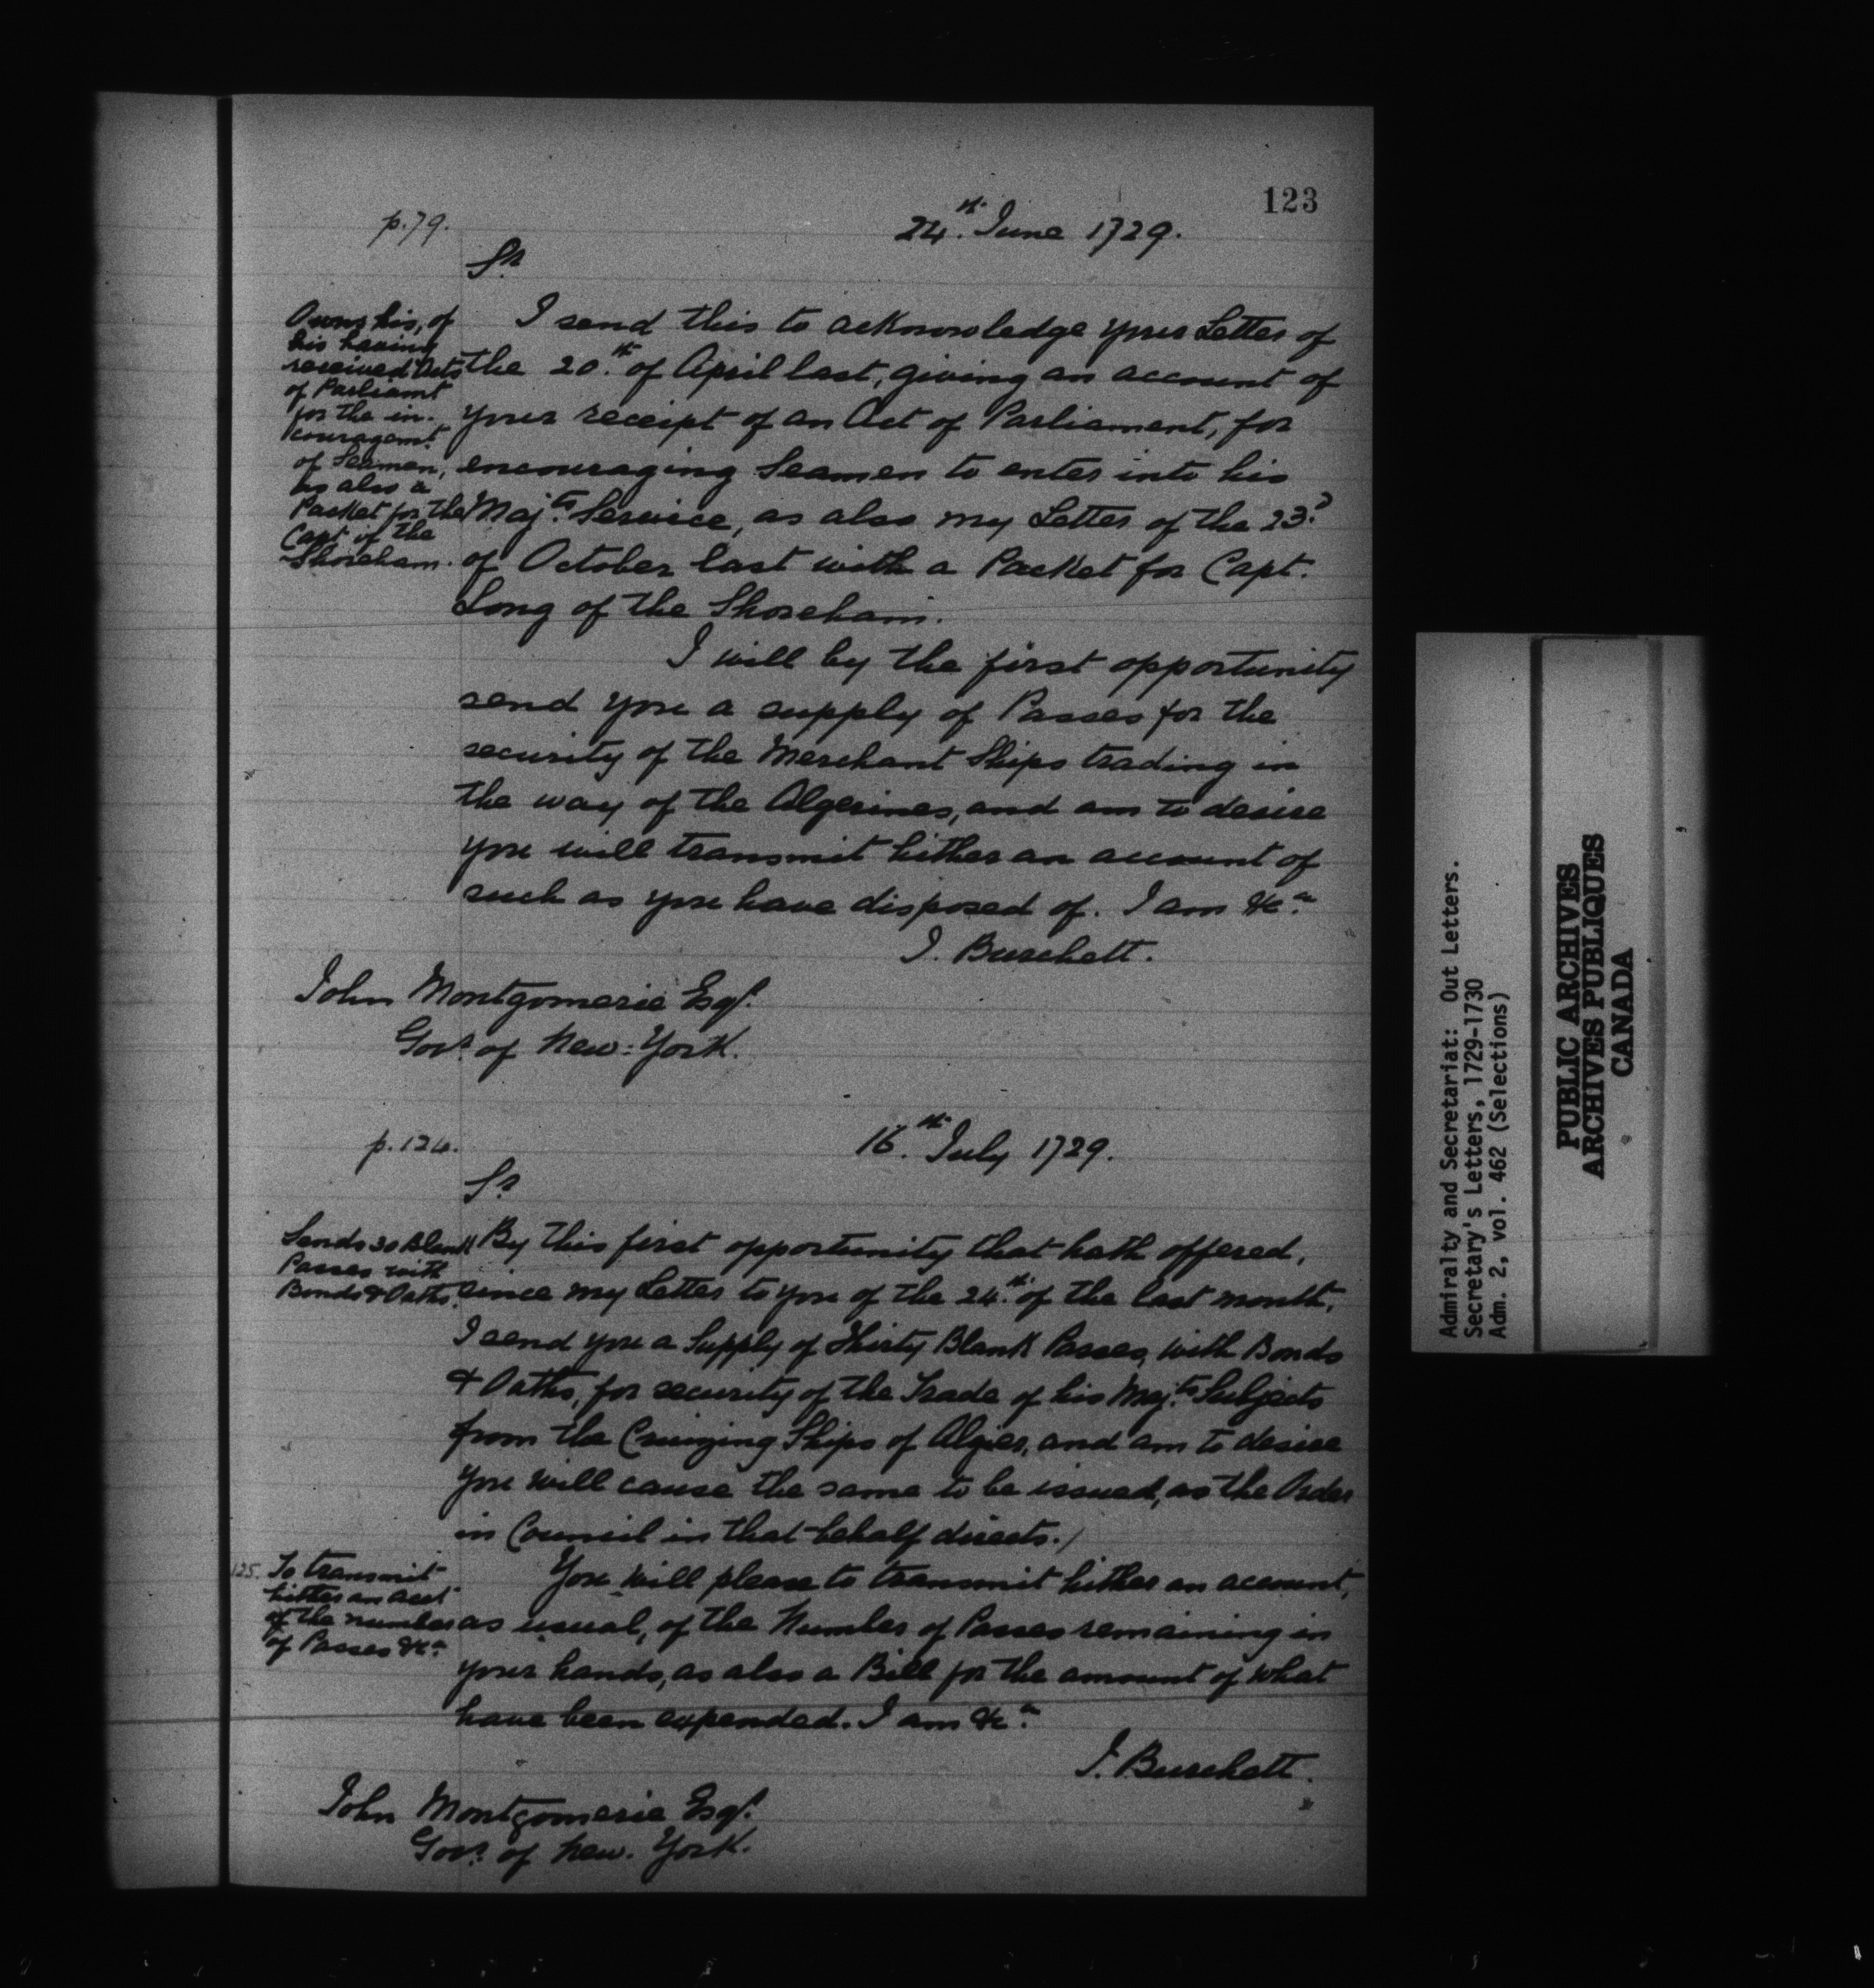 123
p. 79.
24th. June 1729.
Sr.
Owns his, of
his having
received Acts
of Parliamt
for the in-
couragemt
of Seamen,
as also a
Packet for the
Capt of the
Shoreham.
I send this to acknowledge your Letter of
the 20th. of April last, giving an account of
your receipt of an Act of Parliament, for
encouraging Seamen to enter into his
Majts. Service, as also my Letter of the 23d.
of October last with a Packet for Capt.
Long of the Shoreham.
I will by the first opportunity
send you a supply of Passes for the
security of the Merchant Ships trading in
the way of the Algerines, and am to desire
you will transmit hither an account of
such as you have disposed of. I am &ca.
J. Burchett.
John Montgomerie Esqr.
Govr. of New-York.
p. 124.
16th. July 1729.
Sr.
Sends 30 Blank
Passes with
Bonds & Oaths.
By this first opportunity that hath offered,
since my Letter to you of the 24th. of the last month,
I send you a Supply of Thirty Blank Passes, with Bonds
& Oaths, for security of the Trade of his Majts. Subjects
from the Cruizing Ships of Algier, and am to desire
you will cause the same to be issued, as the Order
in Council in that behalf directs./
125. To transmit
hither an acct
of the number
of Passes &ca.
You will please to transmit hither an account,
as usual, of the Number of Passes remaining in
your hands, as also a Bill for the amount of what
have been expended. I am &ca.
J. Burchett.
John Montgomerie Esqr.
Govr. of New-York.
Admiralty and Secretariat: Out Letters.
Secretary's Letters, 1729-1730
Adm. 2, vol. 462 (Selections)
PUBLIC ARCHIVES
ARCHIVES PUBLIQUES
CANADA